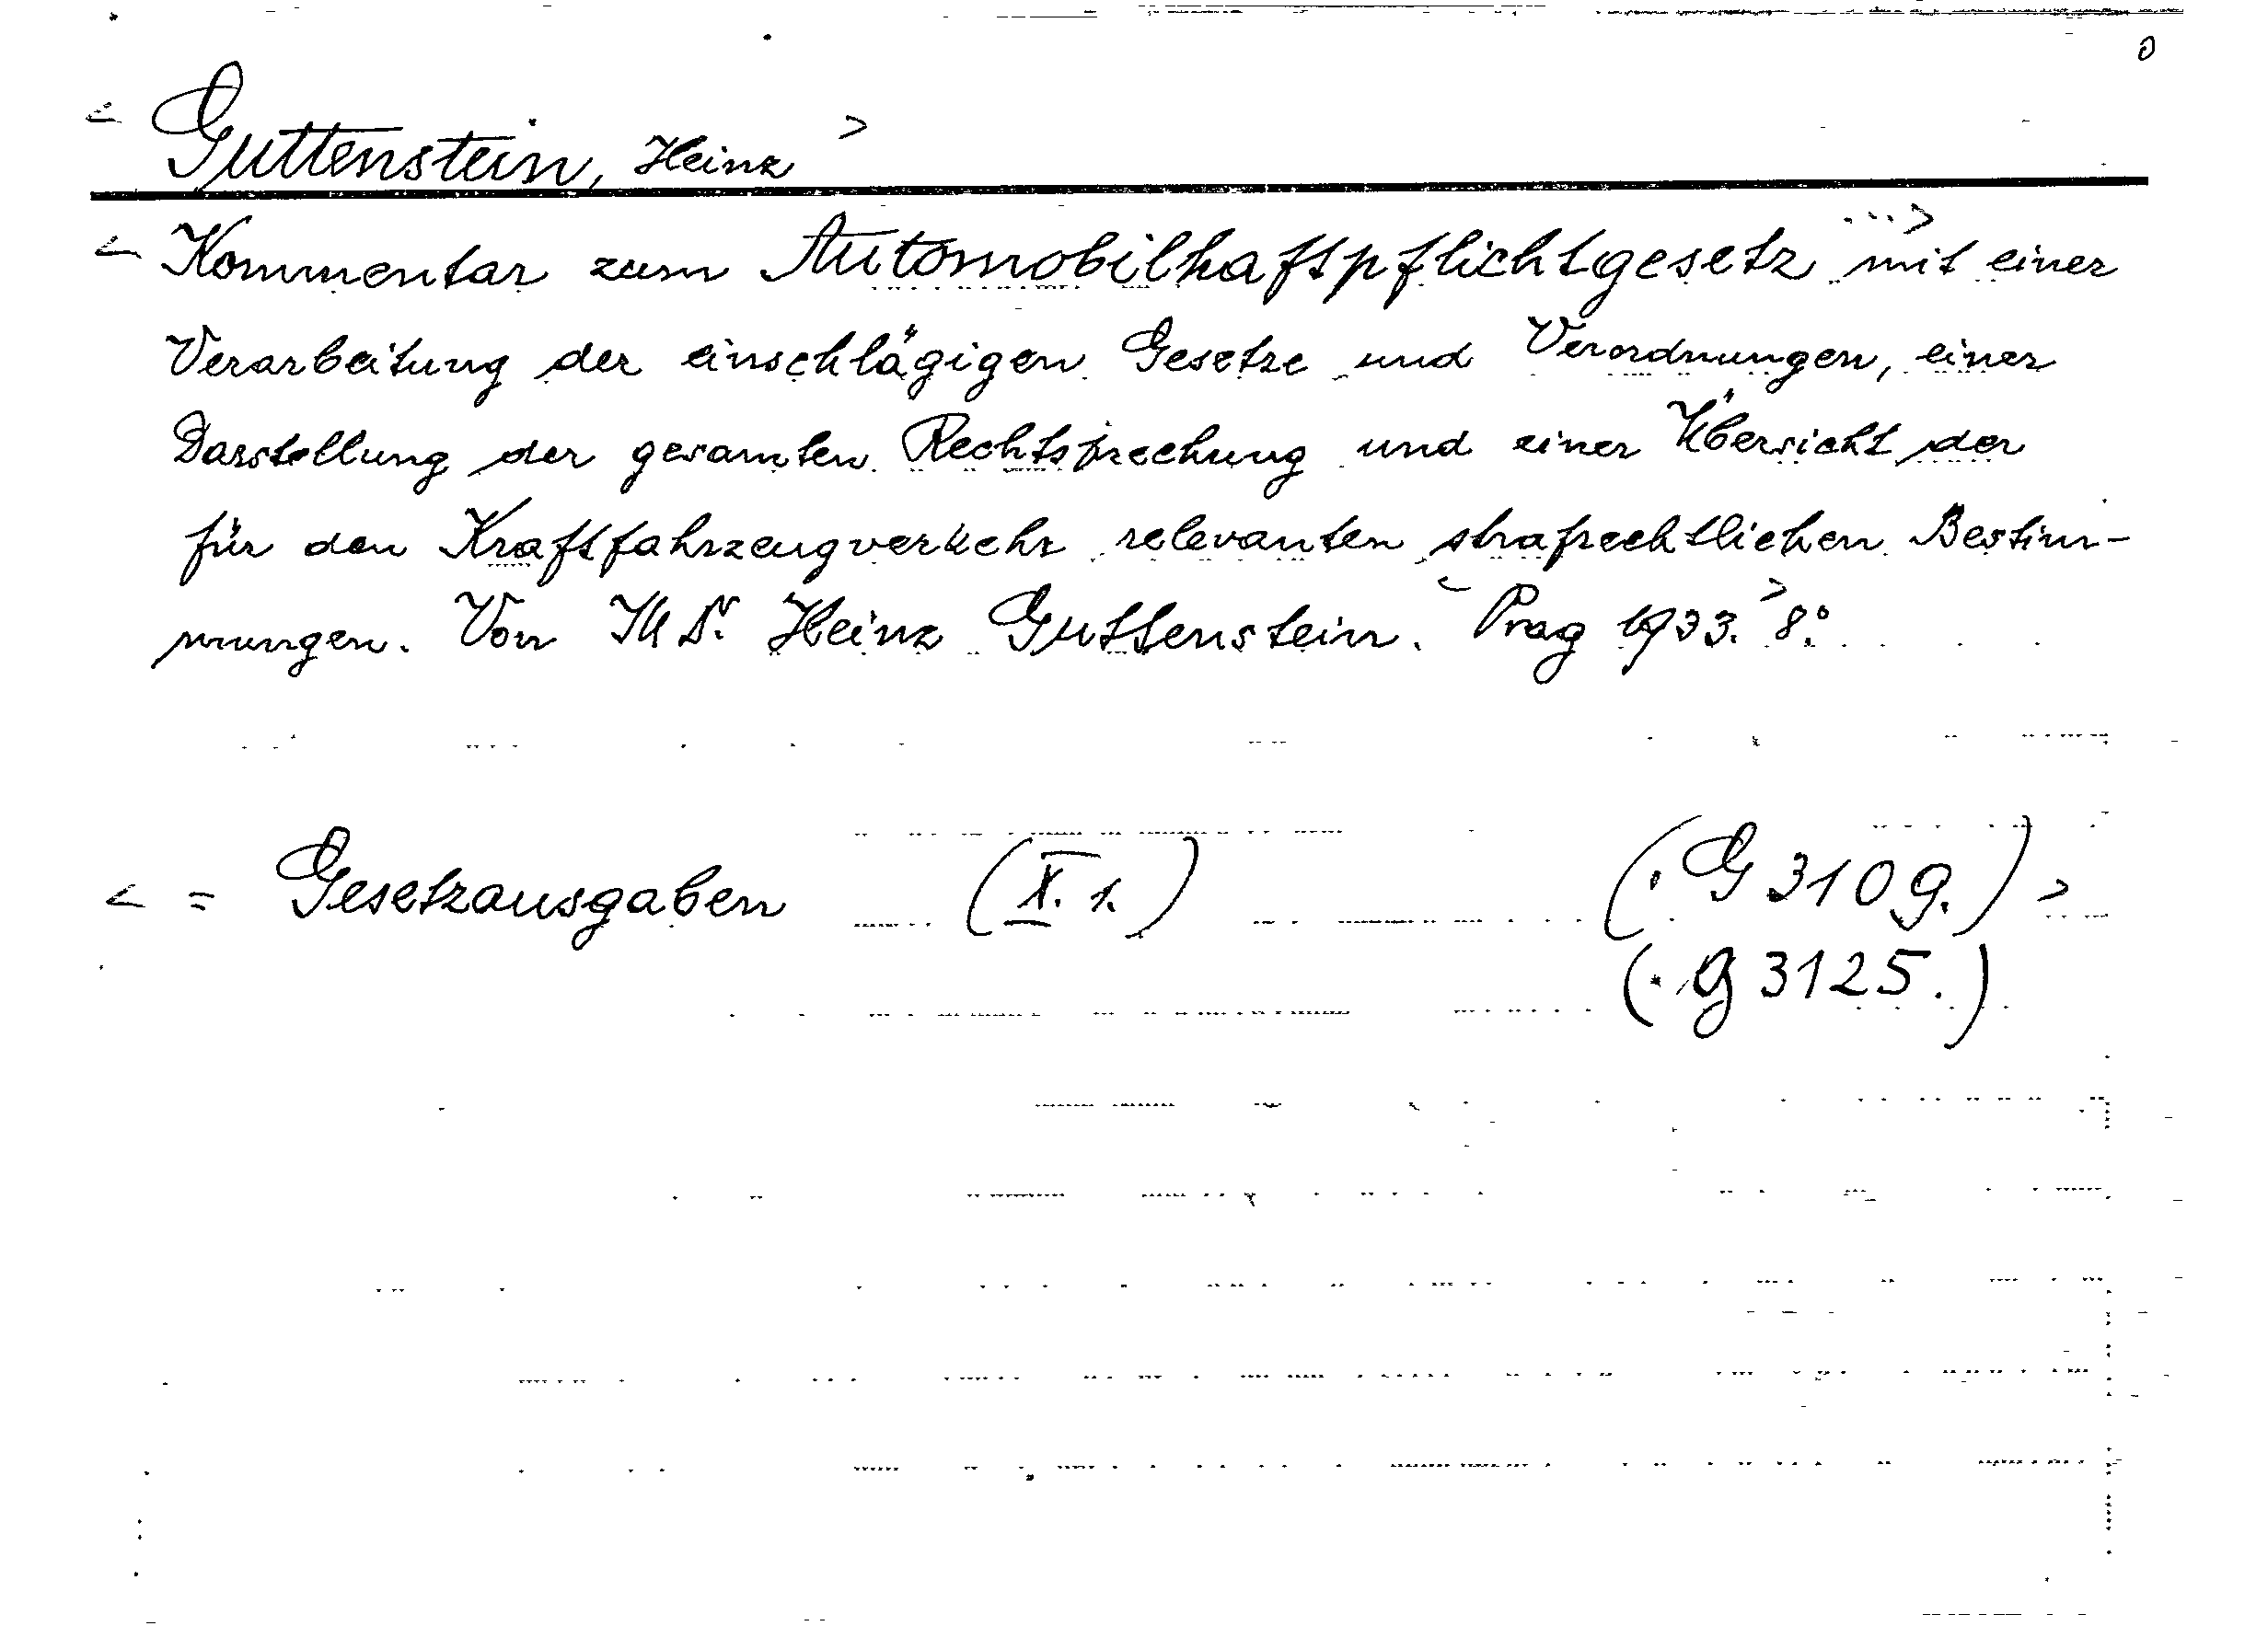 < Guttenstein, Heinz >
< Kommentar zum Automobilhaftpflichtgesetz ...> mit einer
Verarbeitung der einschlägigen Gesetze und Verordnungen, einer
Darstellung der gesamten Rechtsprechung und einer Übersicht der
für den Kraftfahrzeugverkehr relevanten strafrechtlichen Bestim-
mungen. Von Dr. Heinz Guttenstein. < Prag 1933. > 8°.
< = Gesetzausgaben (X. 1.) (· G 3109.) >
(· G 3125.)